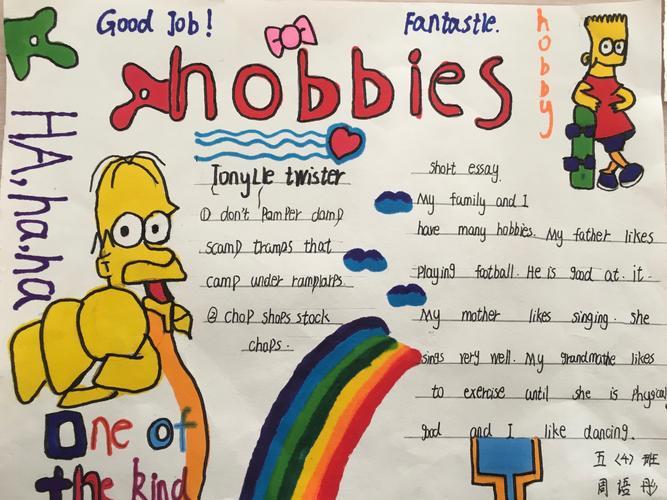 Good Job!
Fantastle.
hobbies
hobby
HA,ha,ha
Tongue twister
① don't pamper damp
scamp tramps that
camp under ramplarps.
② chop shops stock
chops.
short essay.
My family and I
have many hobbies. My father likes
playing football. He is good at it.
My mother likes singing. she
sings very well. My grandmothe likes
to exercise until she is physical
good and I like dancing.
One of
the kind
五〈4〉班
周语彤